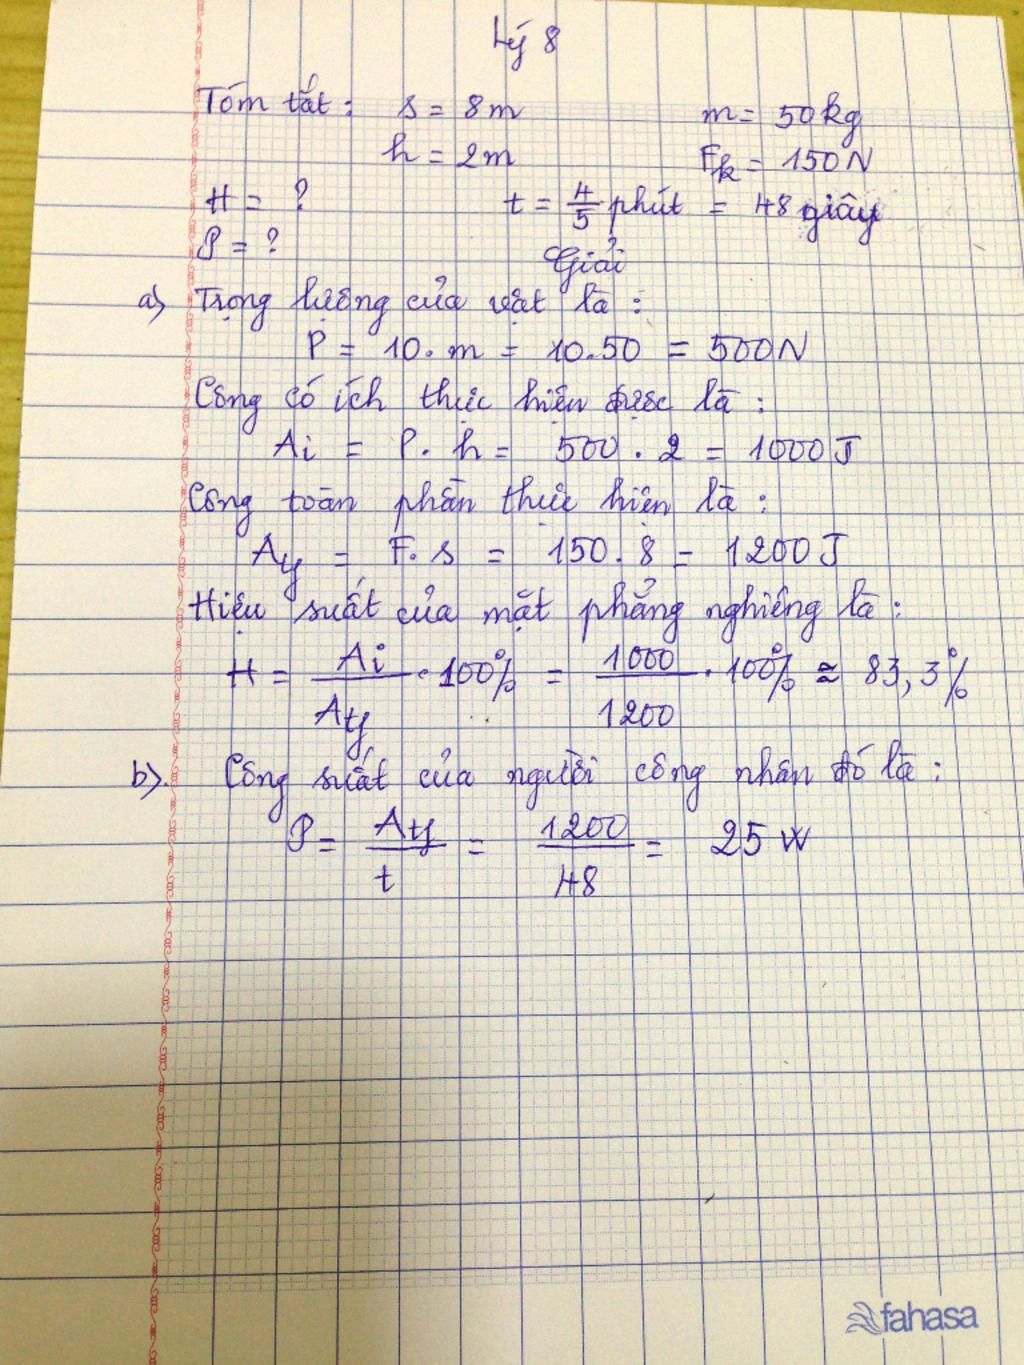 Lý 8
Tóm tắt: s = 8m m = 50kg
h = 2m Fk = 150N
H = ? t = 4/5 phút = 48 giây
P = ?
Giải
a) Trọng lượng của vật là:
P = 10.m = 10.50 = 500N
Công có ích thực hiện được là:
Ai = P.h = 500.2 = 1000J
Công toàn phần thực hiện là:
Atp = F.s = 150.8 = 1200J
Hiệu suất của mặt phẳng nghiêng là:
H = Ai/Atp . 100% = 1000/1200 . 100% ≈ 83,3%
b). Công suất của người công nhân đó là:
P = Atp/t = 1200/48 = 25 W
fahasa